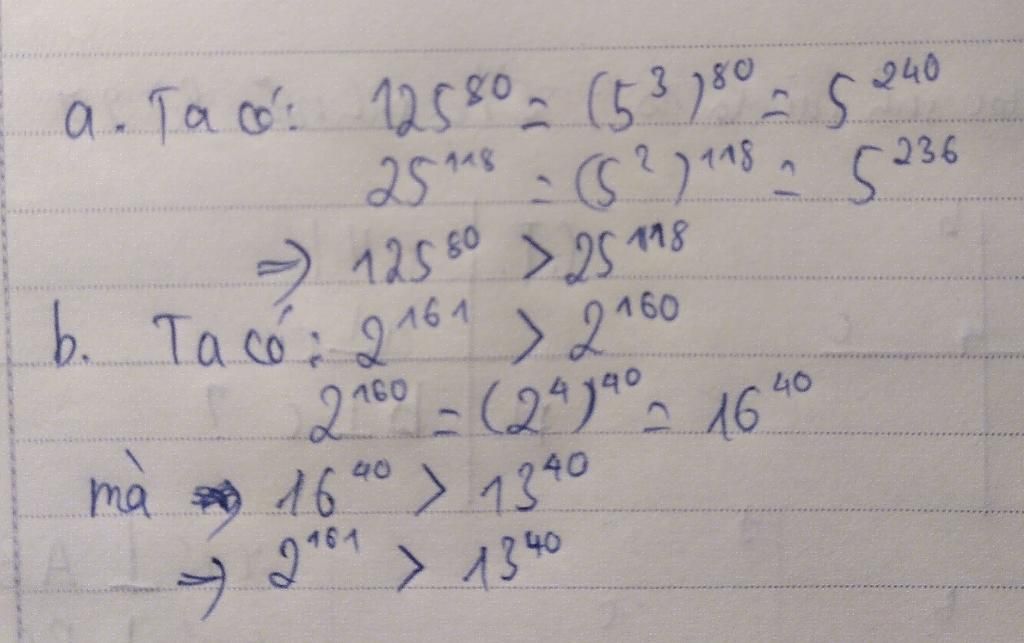 a. Ta có: 125^80 = (5^3)^80 = 5^240
25^118 = (5^2)^118 = 5^236
⇒ 125^80 > 25^118
b. Ta có: 2^161 > 2^160
2^160 = (2^4)^40 = 16^40
mà 16^40 > 13^40
⇒ 2^161 > 13^40